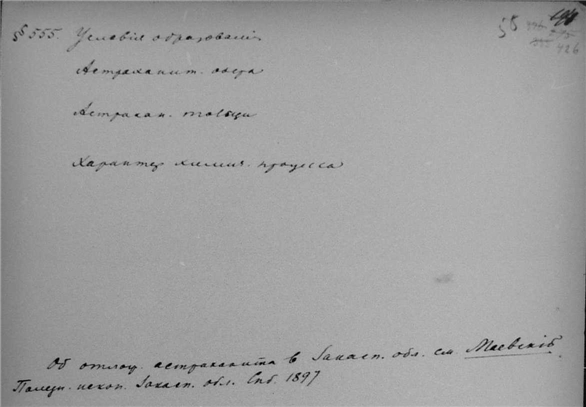 §§ 555. Условія образованія
Астраханит. озера
Астрахан. толщи
Характер химич. процесса
Об отлож. астраханита в Закасп. обл. см. Маевскій
Полезн.ископ. Закасп. обл. Спб. 1897
58
426